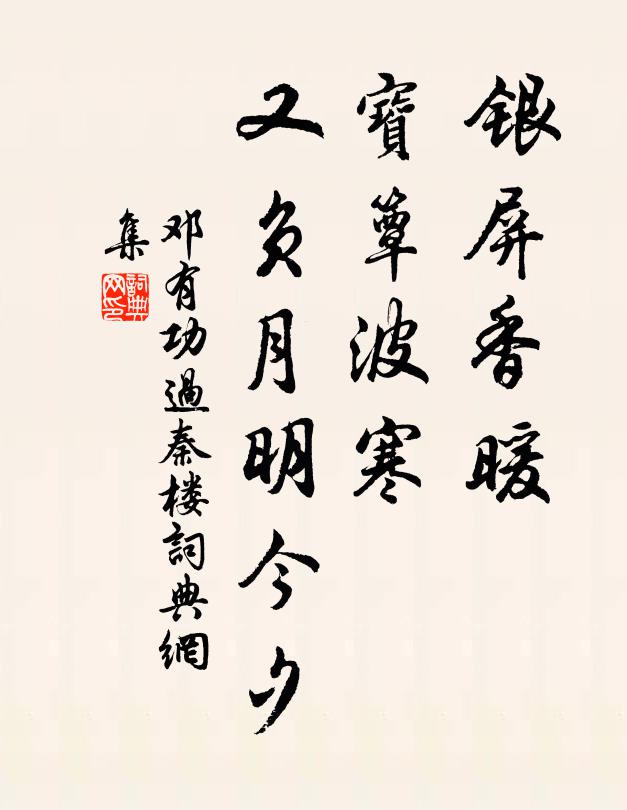 銀屏香暖
寶簟波寒
又負月明今夕
邓有功過秦楼詞典網
集
詞典
网印